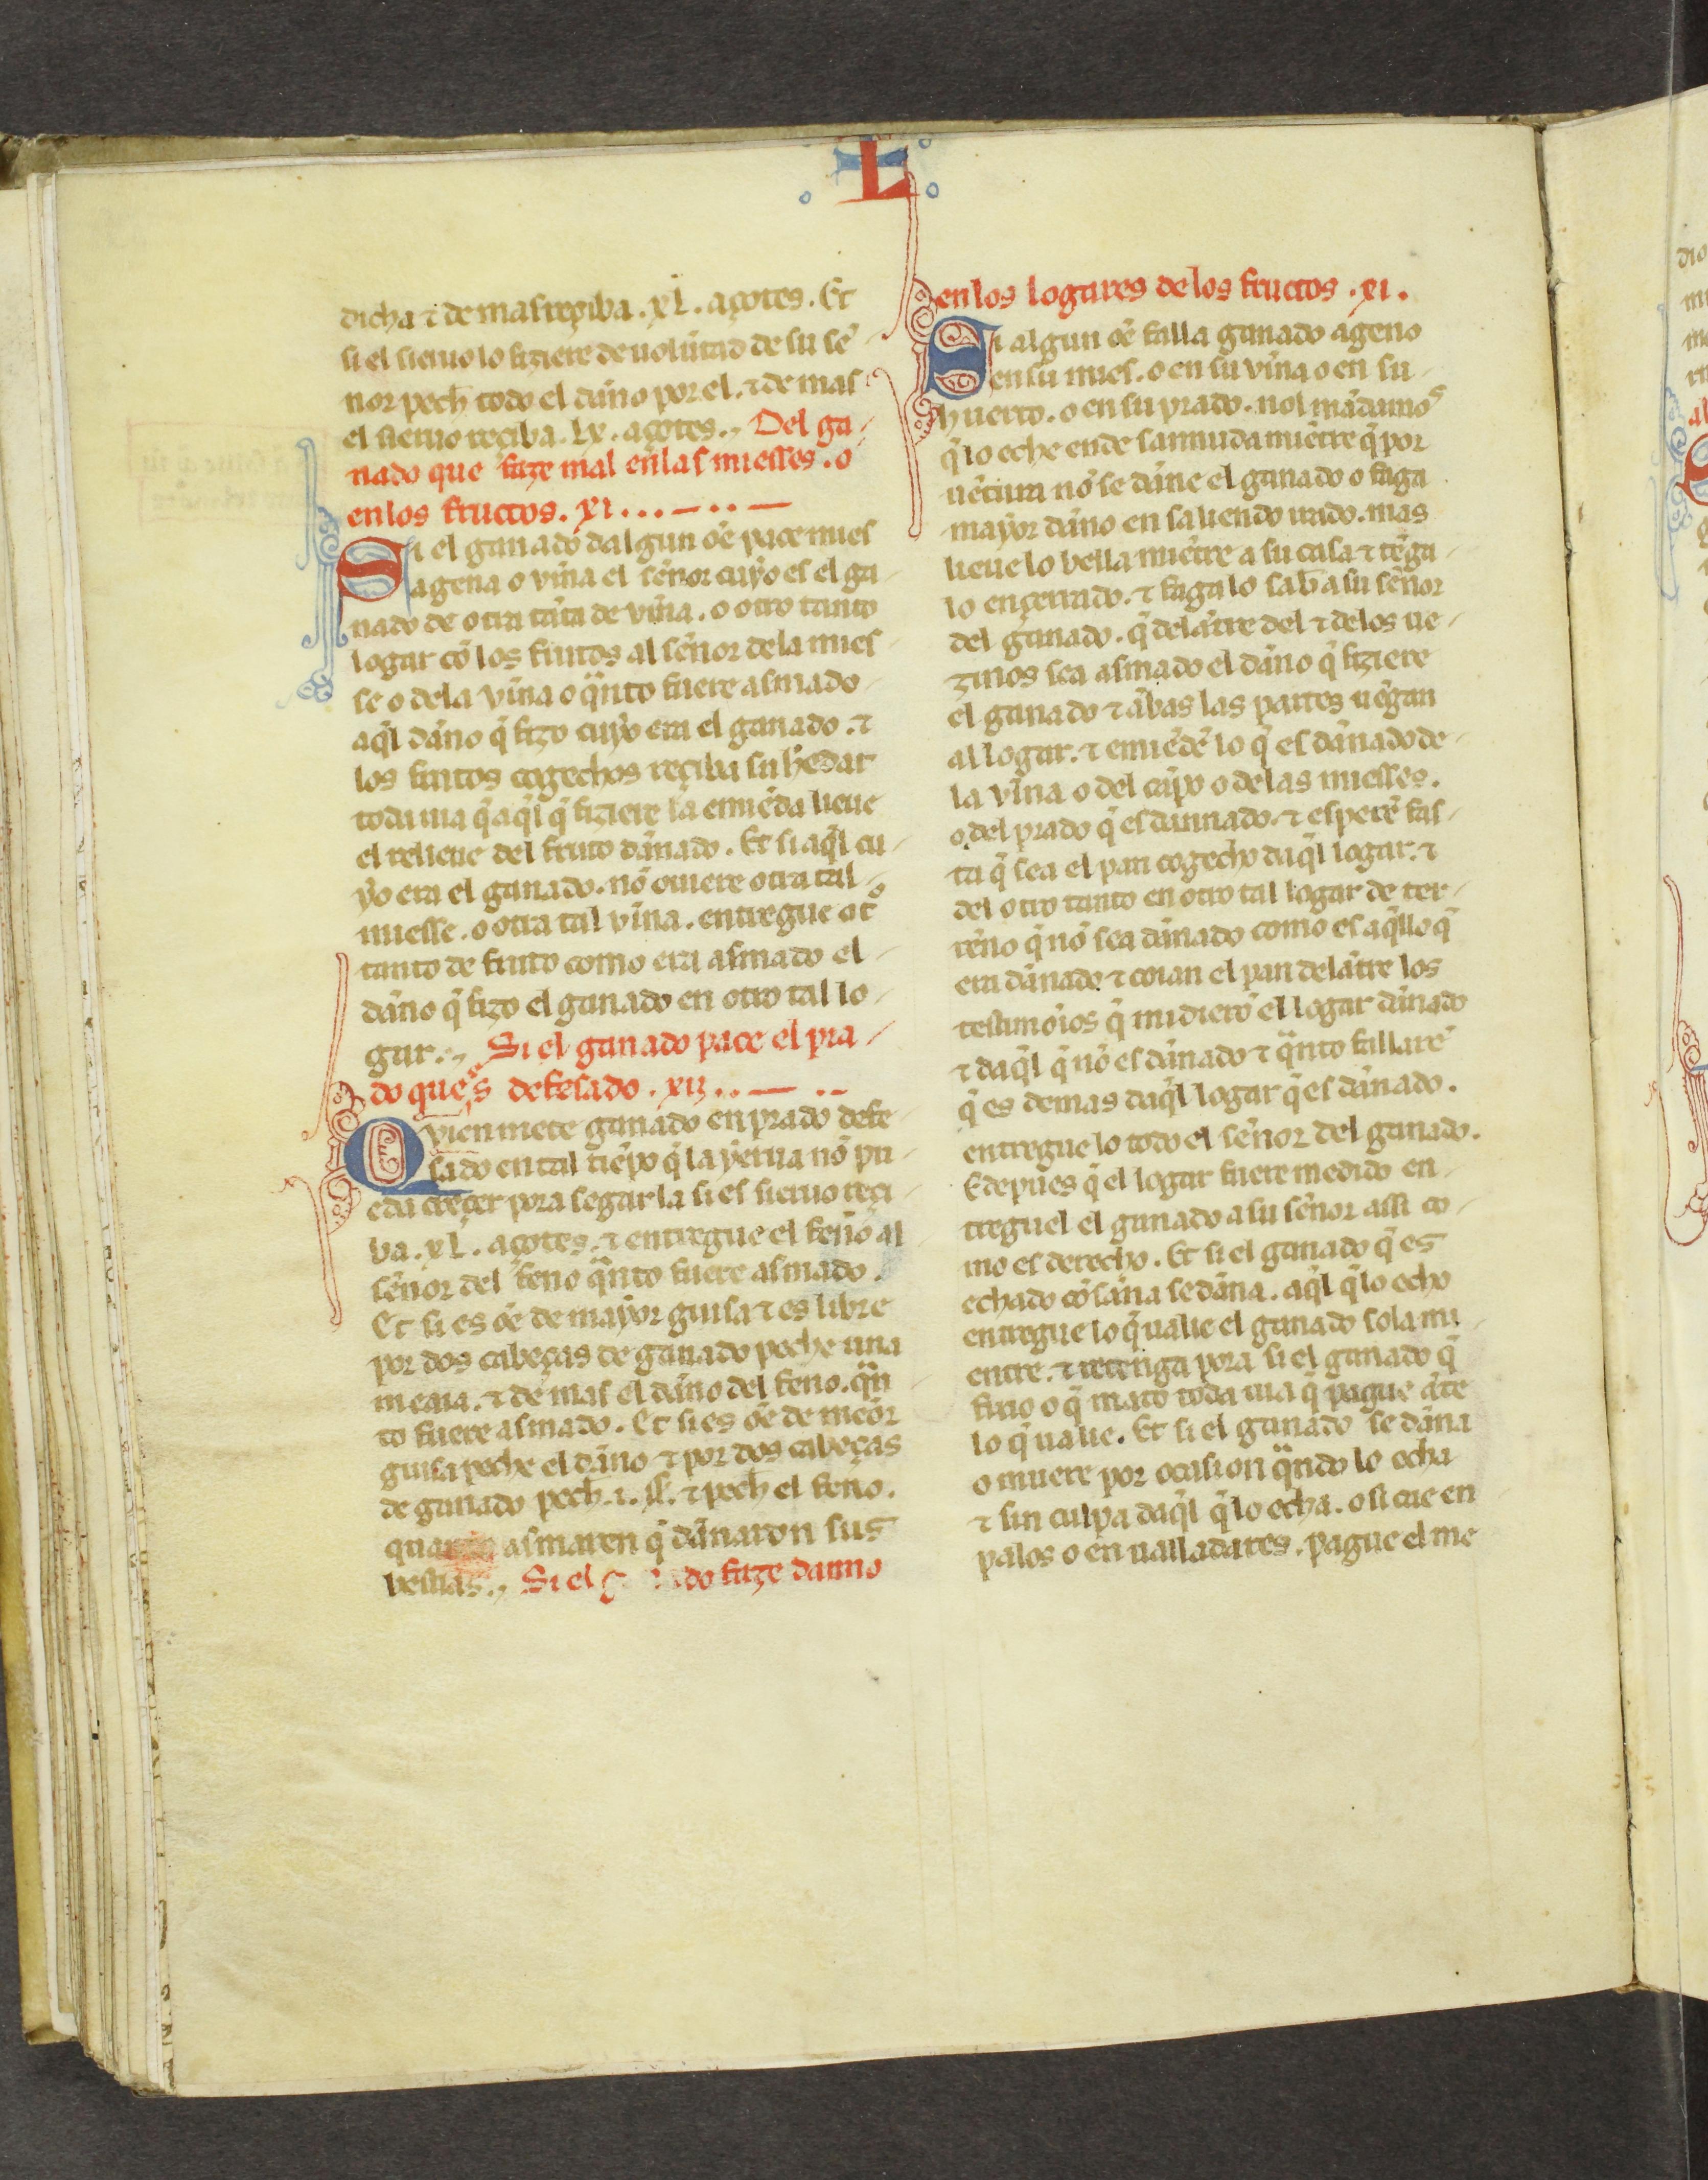 L
dicha ⁊ de mas reçiba .xl. açotes. Et
si el sieruo lo fiziere de uolũtad de su sẽ
nor pech̃ todo el dãno por el. ⁊ de mas
el sieruo reçiba .lx. açotes. Del ga
nado que faze mal en las miesses. o
en los fructos. xi.
Si el ganado dalgun oẽ pace mies
agena o vĩna el sẽnor cuyo es el ga
nado de otra tãta de vĩna. o otro tanto
logar cõ los frutos al sẽnor dela mies
se o dela vĩna o q̃nto fuere asmado
aq̃l dãno q̃ fizo cuyo era el ganado. ⁊
los frutos cogechos reçiba su h̃edat
toda uia q̃ aq̃l q̃ fiziere la emiẽda lieue
el relieue del fruto dãnado. Et si aq̃l cu
yo era el ganado. nõ ouiere otra tal
miesse. o otra tal vĩna. entregue otᵒ
tanto de fruto como era asmado el
dãno q̃ fizo el ganado en otro tal lo
gar. Si el ganado pace el pra
do ques defesado. xii.
Qvien mete ganado en prado defe
sado en tal tiẽpo q̃ la yerua nõ pu
eda creçer pora segar la si es sieruo reçi
ba .xl. açotes. ⁊ entregue el feno al
sẽnor del feno q̃nto fuere asmado.
Et si es oẽ de mayor guisa ⁊ es libre
por dos cabeças de ganado peche una
meaia. ⁊ de mas el dãno del feno. q̃n
to fuere asmado. Et si es oẽ de meõr
guisa peche el dãno ⁊ por dos cabeças
de ganado pech .i. sł. ⁊ pech̃ el feno.
quanto asmaren q̃ dãnaron sus
bestias. Si el do faze danno
en los logares de los fructos .xi.
Si algun oẽ falla ganado ageno
en su mies. o en su vĩna o en su
huerto. o en su prado. nol mãdamoˢ
q̃ lo eche ende sannuda miẽtre q̃ por
uẽtura nõ se dãne el ganado o faga
mayor dãno en saliendo irado. mas
lieue lo bella miẽtre a su casa ⁊ tẽga
lo ençerrado. ⁊ faga lo sab̃ a su sẽnor
del ganado. q̃ delãtre del ⁊ delos ue
zinos sea asmado el dãno q̃ fiziere
el ganado ⁊ ãbas las partes uẽgan
al logar. ⁊ emiẽdẽ lo q̃ es dãnado de
la vĩna o del cãpo o delas miesses.
o del prado q̃ es dannado. ⁊ esperẽ fas
ta q̃ sea el pan cogecho daq̃l logar. ⁊
del otro tanto en otro tal logar de ter
rẽno q̃ nõ sea dãnado como es aq̃llo q̃
era dãnado ⁊ coian el pan delãtre los
testimõios q̃ midierõ el logar dãnado
⁊ daq̃l q̃ nõ es dãnado ⁊ q̃nto fallarẽ
q̃ es demas daq̃l logar q̃ es dãnado.
entregue lo todo el sẽnor del ganado.
E depues q̃ el logar fuere medido en
treguel el ganado a su sẽnor assi co
mo es derecho. Et si el ganado q̃ es
echado cõ sãna se dãna. aq̃l q̃ lo echo
entregue lo q̃ ualie el ganado sola mi
entre. ⁊ retenga pora si el ganado q̃
firio o q̃ mato toda uia q̃ pague ãte
lo q̃ ualie. Et si el ganado se dãna
o muere por ocasion q̃ndo lo echa
⁊ sin culpa daq̃l q̃ lo echa. o si cae en
palos o en ualladares. pague el me